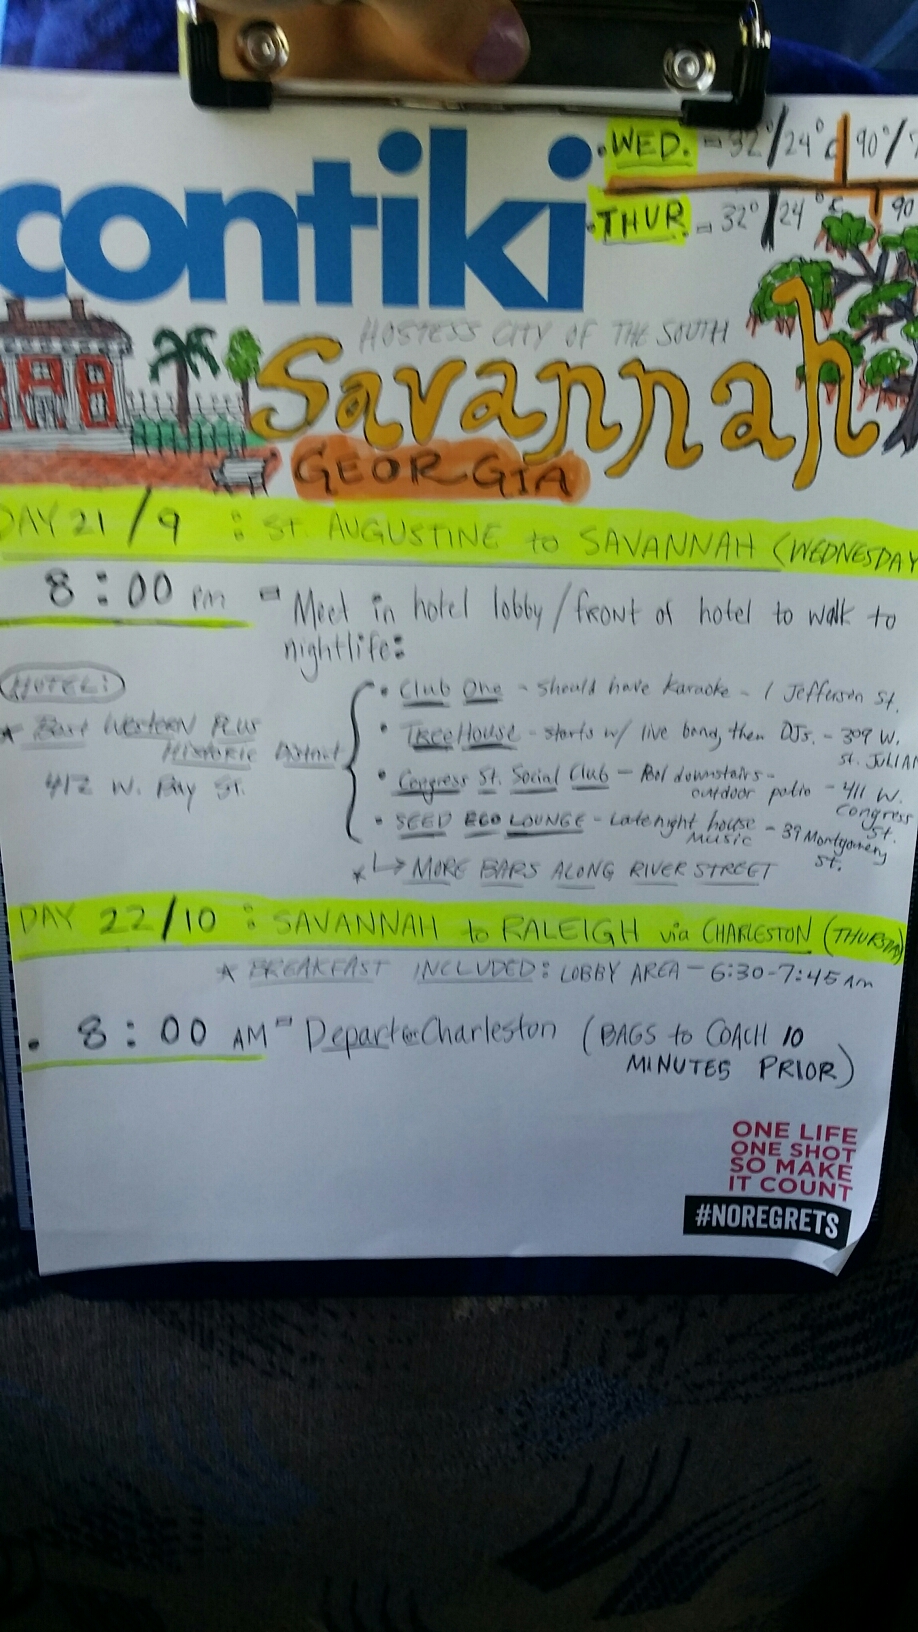 contiki
• WED. = 32°/24°c 90°/
• THUR = 32°/24°c 90
HOSTESS CITY OF THE SOUTH
Savannah
GEORGIA
DAY 21/9 : ST. AUGUSTINE to SAVANNAH (WEDNESDAY
8:00 pm = Meet in hotel lobby/front of hotel to walk to
nightlife:
HOTEL:
* Best WESTERN PLUS
HISTORIC District
412 W. Bay St.
• Club One - should have karaoke - 1 Jefferson St.
• TREEHOUSE - starts w/ live band, then DJs. - 309 W.
St. JULIAN
• Congress St. Social Club - Pool downstairs -
outdoor patio - 411 W.
Congress
St.
• SEED ECO LOUNGE - Late night house
MUSIC - 39 Montgomery
St.
* ↳ MORE BARS ALONG RIVER STREET
DAY 22/10 : SAVANNAH to RALEIGH via CHARLESTON (THURSDAY
* BREAKFAST INCLUDED: LOBBY AREA - 6:30-7:45 AM
• 8:00 AM = Depart Charleston (BAGS to COACH 10
MINUTES PRIOR)
ONE LIFE
ONE SHOT
SO MAKE
IT COUNT
#NOREGRETS